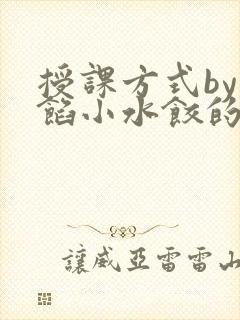 授課方式by
餡小水餃的
讓威亞雷雷山